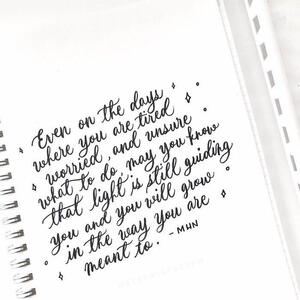 Even on the days
where you are tired
worried, and unsure
what to do, may you know
that light is still guiding
you and you will grow
in the way you are
meant to. - MHN